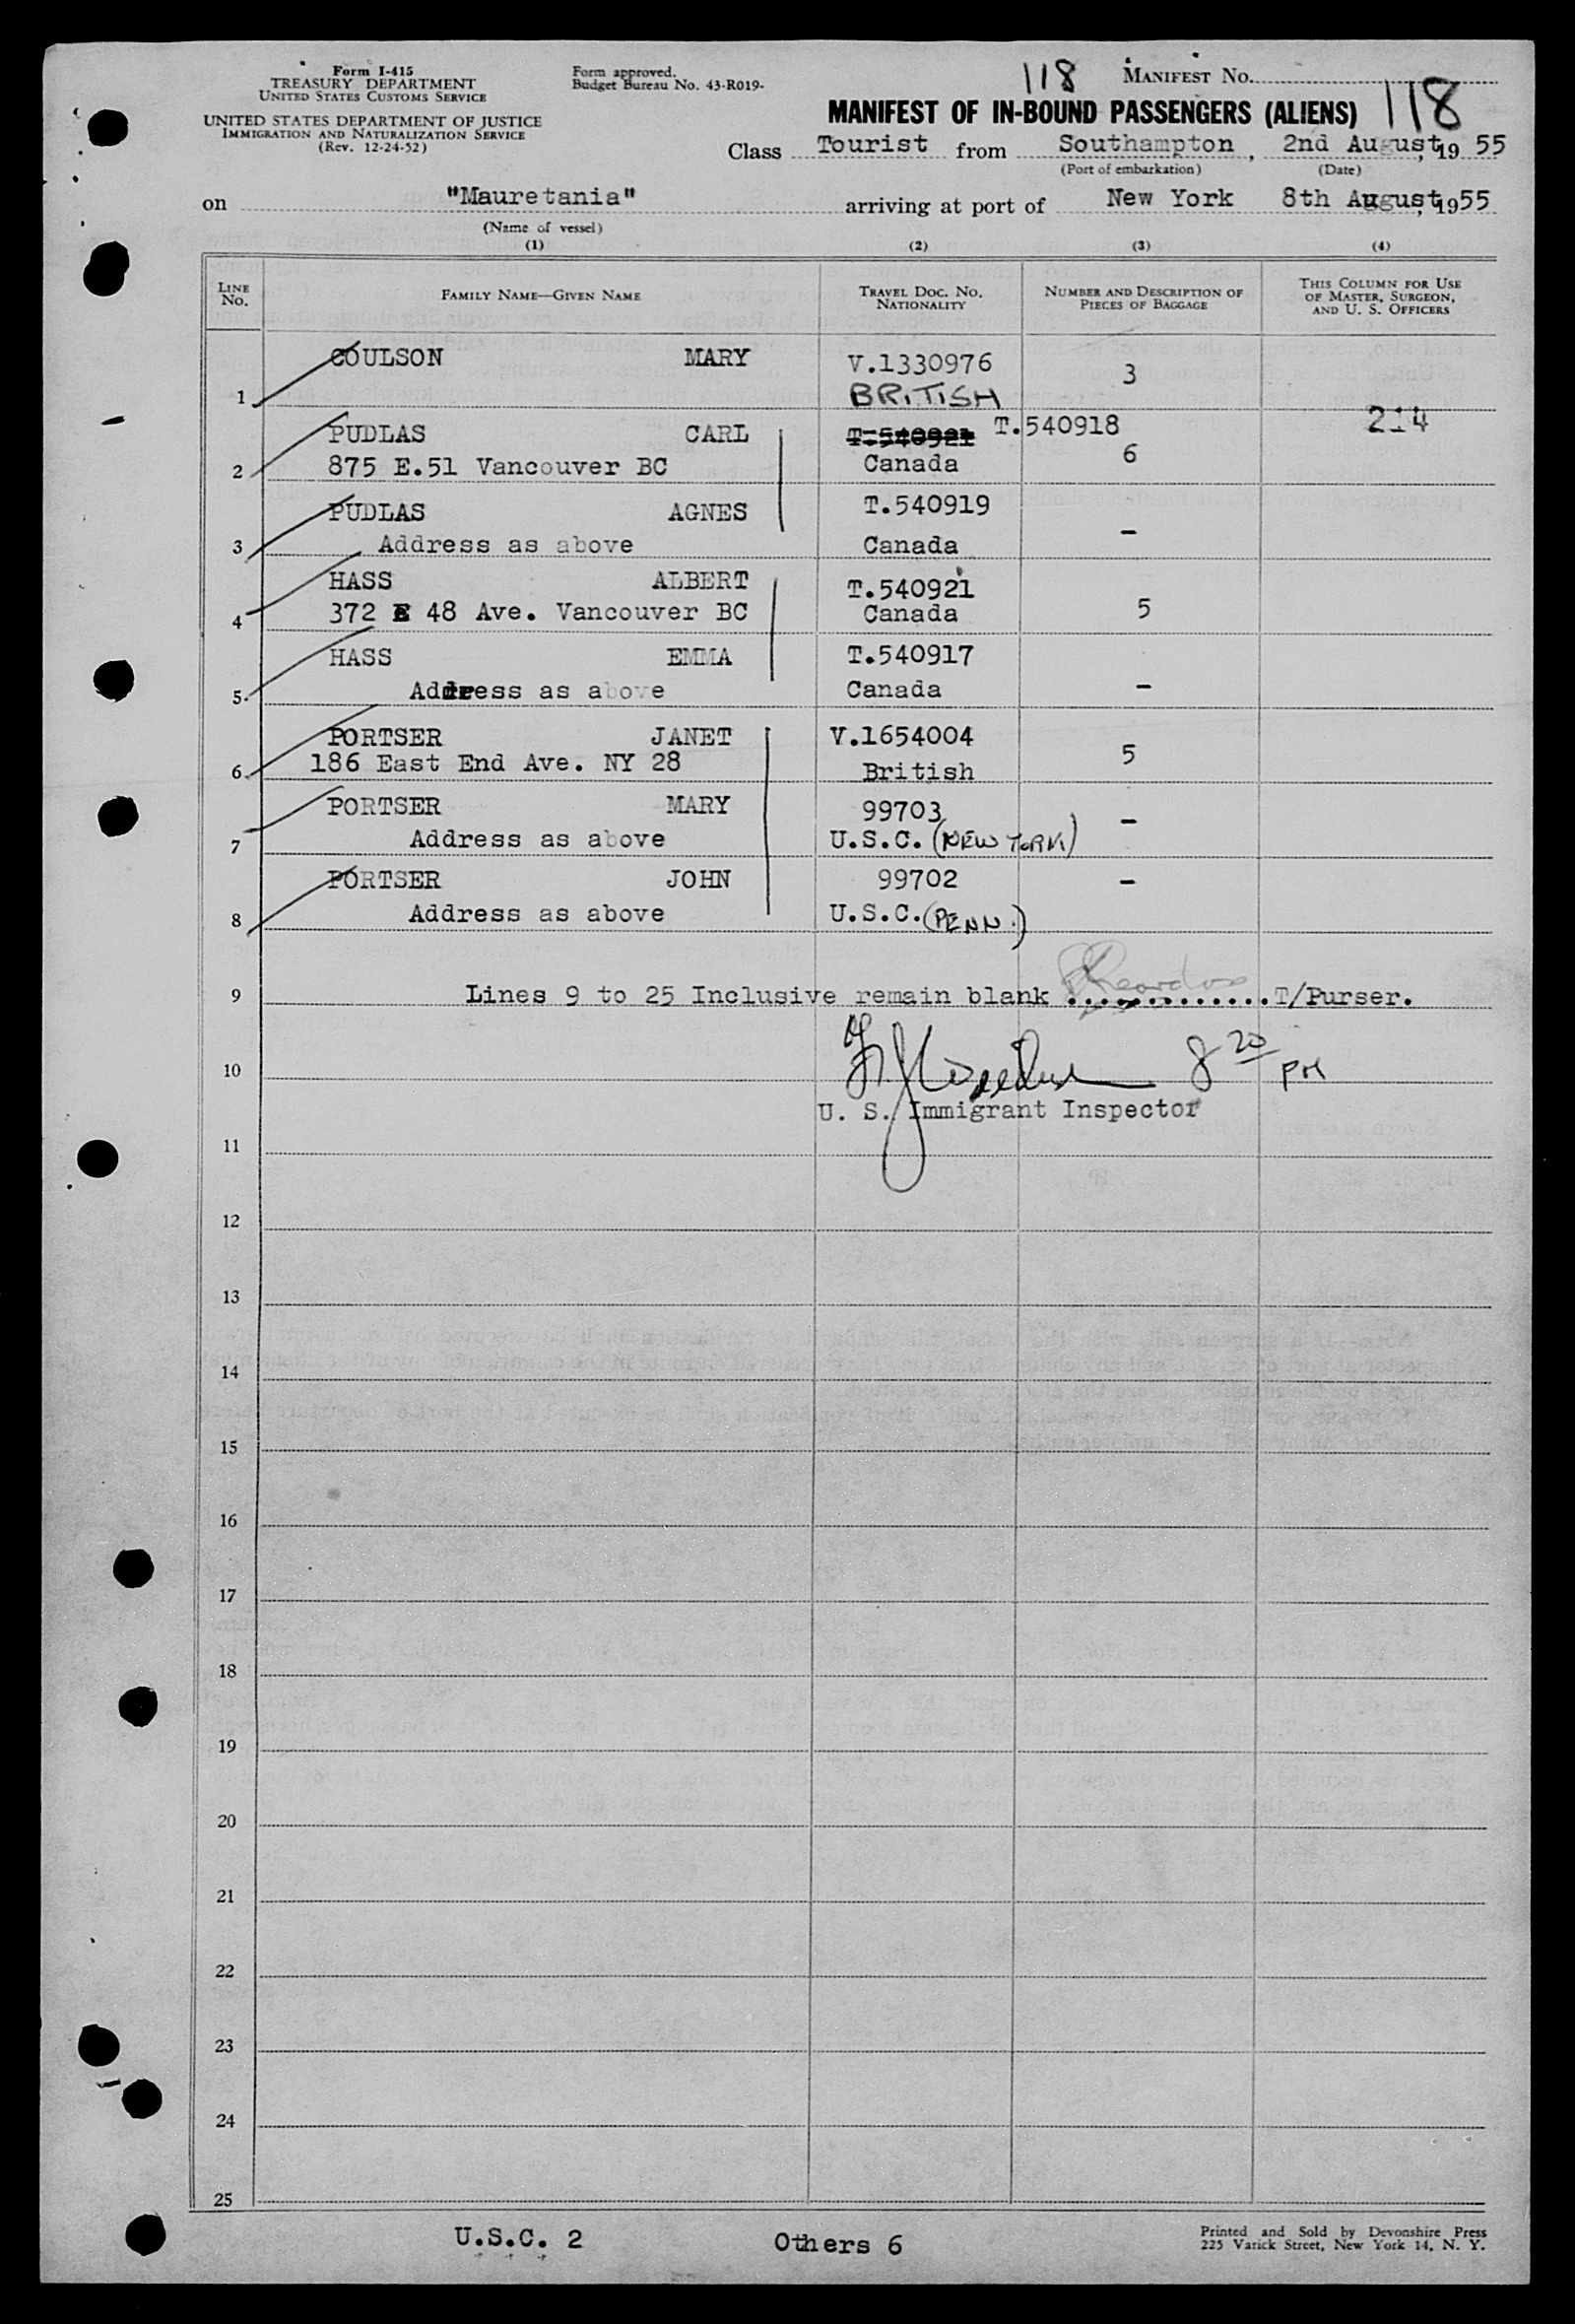 Form I-415
TREASURY DEPARTMENT
UNITED STATES CUSTOMS SERVICE
UNITED STATES DEPARTMENT OF JUSTICE
IMMIGRATION AND NATURALIZATION SERVICE
(Rev. 12-24-52)
Form approved.
Budget Bureau No. 43-R019-
118 MANIFEST No.
MANIFEST OF IN-BOUND PASSENGERS (ALIENS) 118
Class Tourist from Southampton, 2nd August, 19 55
(Port of embarkation) (Date)
on "Mauretania" arriving at port of New York 8th August, 1955
(Name of vessel)
(1) (2) (3) (4)
LINE No. FAMILY NAME—GIVEN NAME TRAVEL DOC. NO. NATIONALITY NUMBER AND DESCRIPTION OF PIECES OF BAGGAGE THIS COLUMN FOR USE OF MASTER, SURGEON, AND U. S. OFFICERS
1 COULSON MARY V.1330976 3
BRITISH
2 PUDLAS CARL T.540921 T.540918 214
875 E.51 Vancouver BC Canada 6
3 PUDLAS AGNES T.540919 –
Address as above Canada
4 HASS ALBERT T.540921
372 E 48 Ave. Vancouver BC Canada 5
5 HASS EMMA T.540917
Address as above Canada –
6 PORTSER JANET V.1654004 5
186 East End Ave. NY 28 British
7 PORTSER MARY 99703 –
Address as above U.S.C. (NEW YORK)
8 PORTSER JOHN 99702 –
Address as above U.S.C. (PENN.)
9 Lines 9 to 25 Inclusive remain blank .............T/Purser.
10 8 20 PM
U. S. Immigrant Inspector
11
12
13
14
15
16
17
18
19
20
21
22
23
24
25
U.S.C. 2 Others 6
Printed and Sold by Devonshire Press
225 Varick Street, New York 14, N. Y.